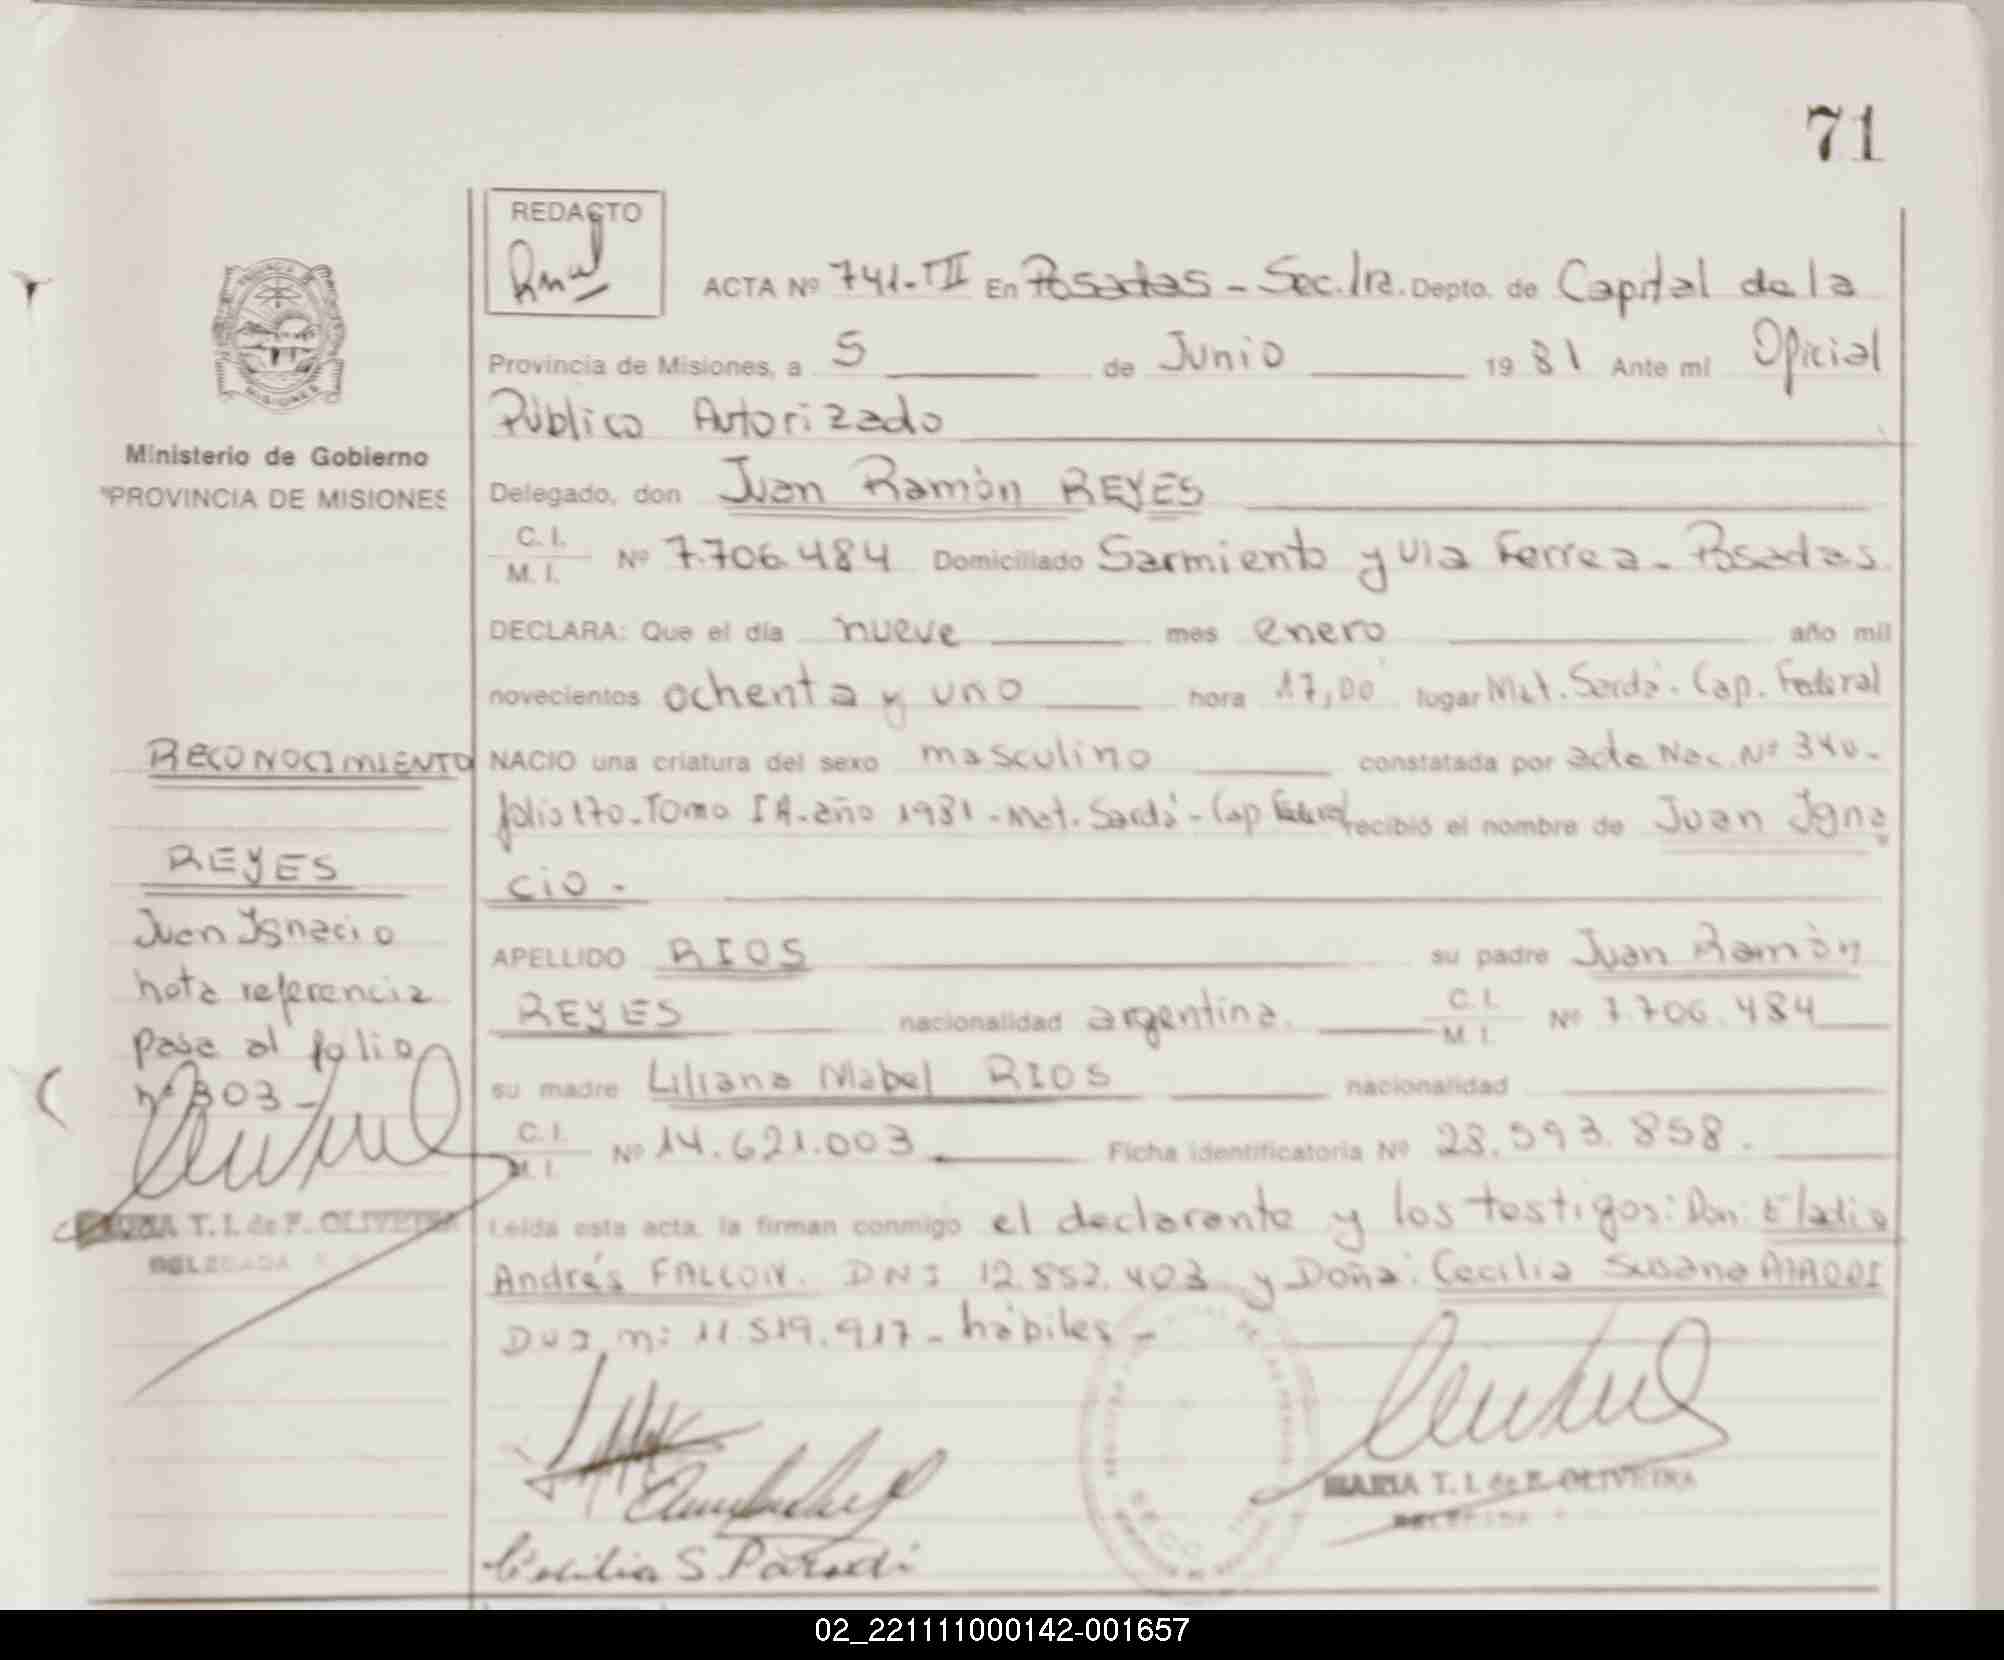 71
REDACTO
ACTA Nº 741-TII En Posadas - Sec. 1ra. Depto. de Capital de la
Provincia de Misiones, a 5 de Junio 1981 Ante mi Oficial
Público Autorizado
Ministerio de Gobierno
PROVINCIA DE MISIONES
Delegado, don Juan Ramón REYES
C. I.
M. I. Nº 7.706.484 Domiciliado Sarmiento y Via Ferrea - Posadas.
DECLARA: Que el día nueve mes enero año mil
novecientos ochenta y uno hora 17,00 lugar Mat. Sardá. Cap. Federal
RECONOCIMIENTO
NACIO una criatura del sexo masculino constatada por acta Nac. Nº 340-
folio 170. Tomo I A. año 1981 - Mat. Sardá - Cap Federal recibió el nombre de Juan Igna
cio.
REYES
Juan Ignacio
nota referencia
pase al folio
nº 303 -
APELLIDO RIOS su padre Juan Ramón
REYES nacionalidad argentina. C. I.
M. I. Nº 7.706.484
su madre Liliana Mabel RIOS nacionalidad
C. I.
M. I. Nº 14.621.003 Ficha identificatoria Nº 28.593.858.
T. I. de F. OLIVEIRA
DELEGADA
Leída esta acta, la firman conmigo el declarante y los testigos: Don: Eladio
Andrés FALCON. DNI 12.852.403 y Doña: Cecilia Susana
11.519.917 - hábiles -
MARIA T. I. de F. OLIVEIRA
DELEGADA
Cecilia S Parodi
02_221111000142-001657